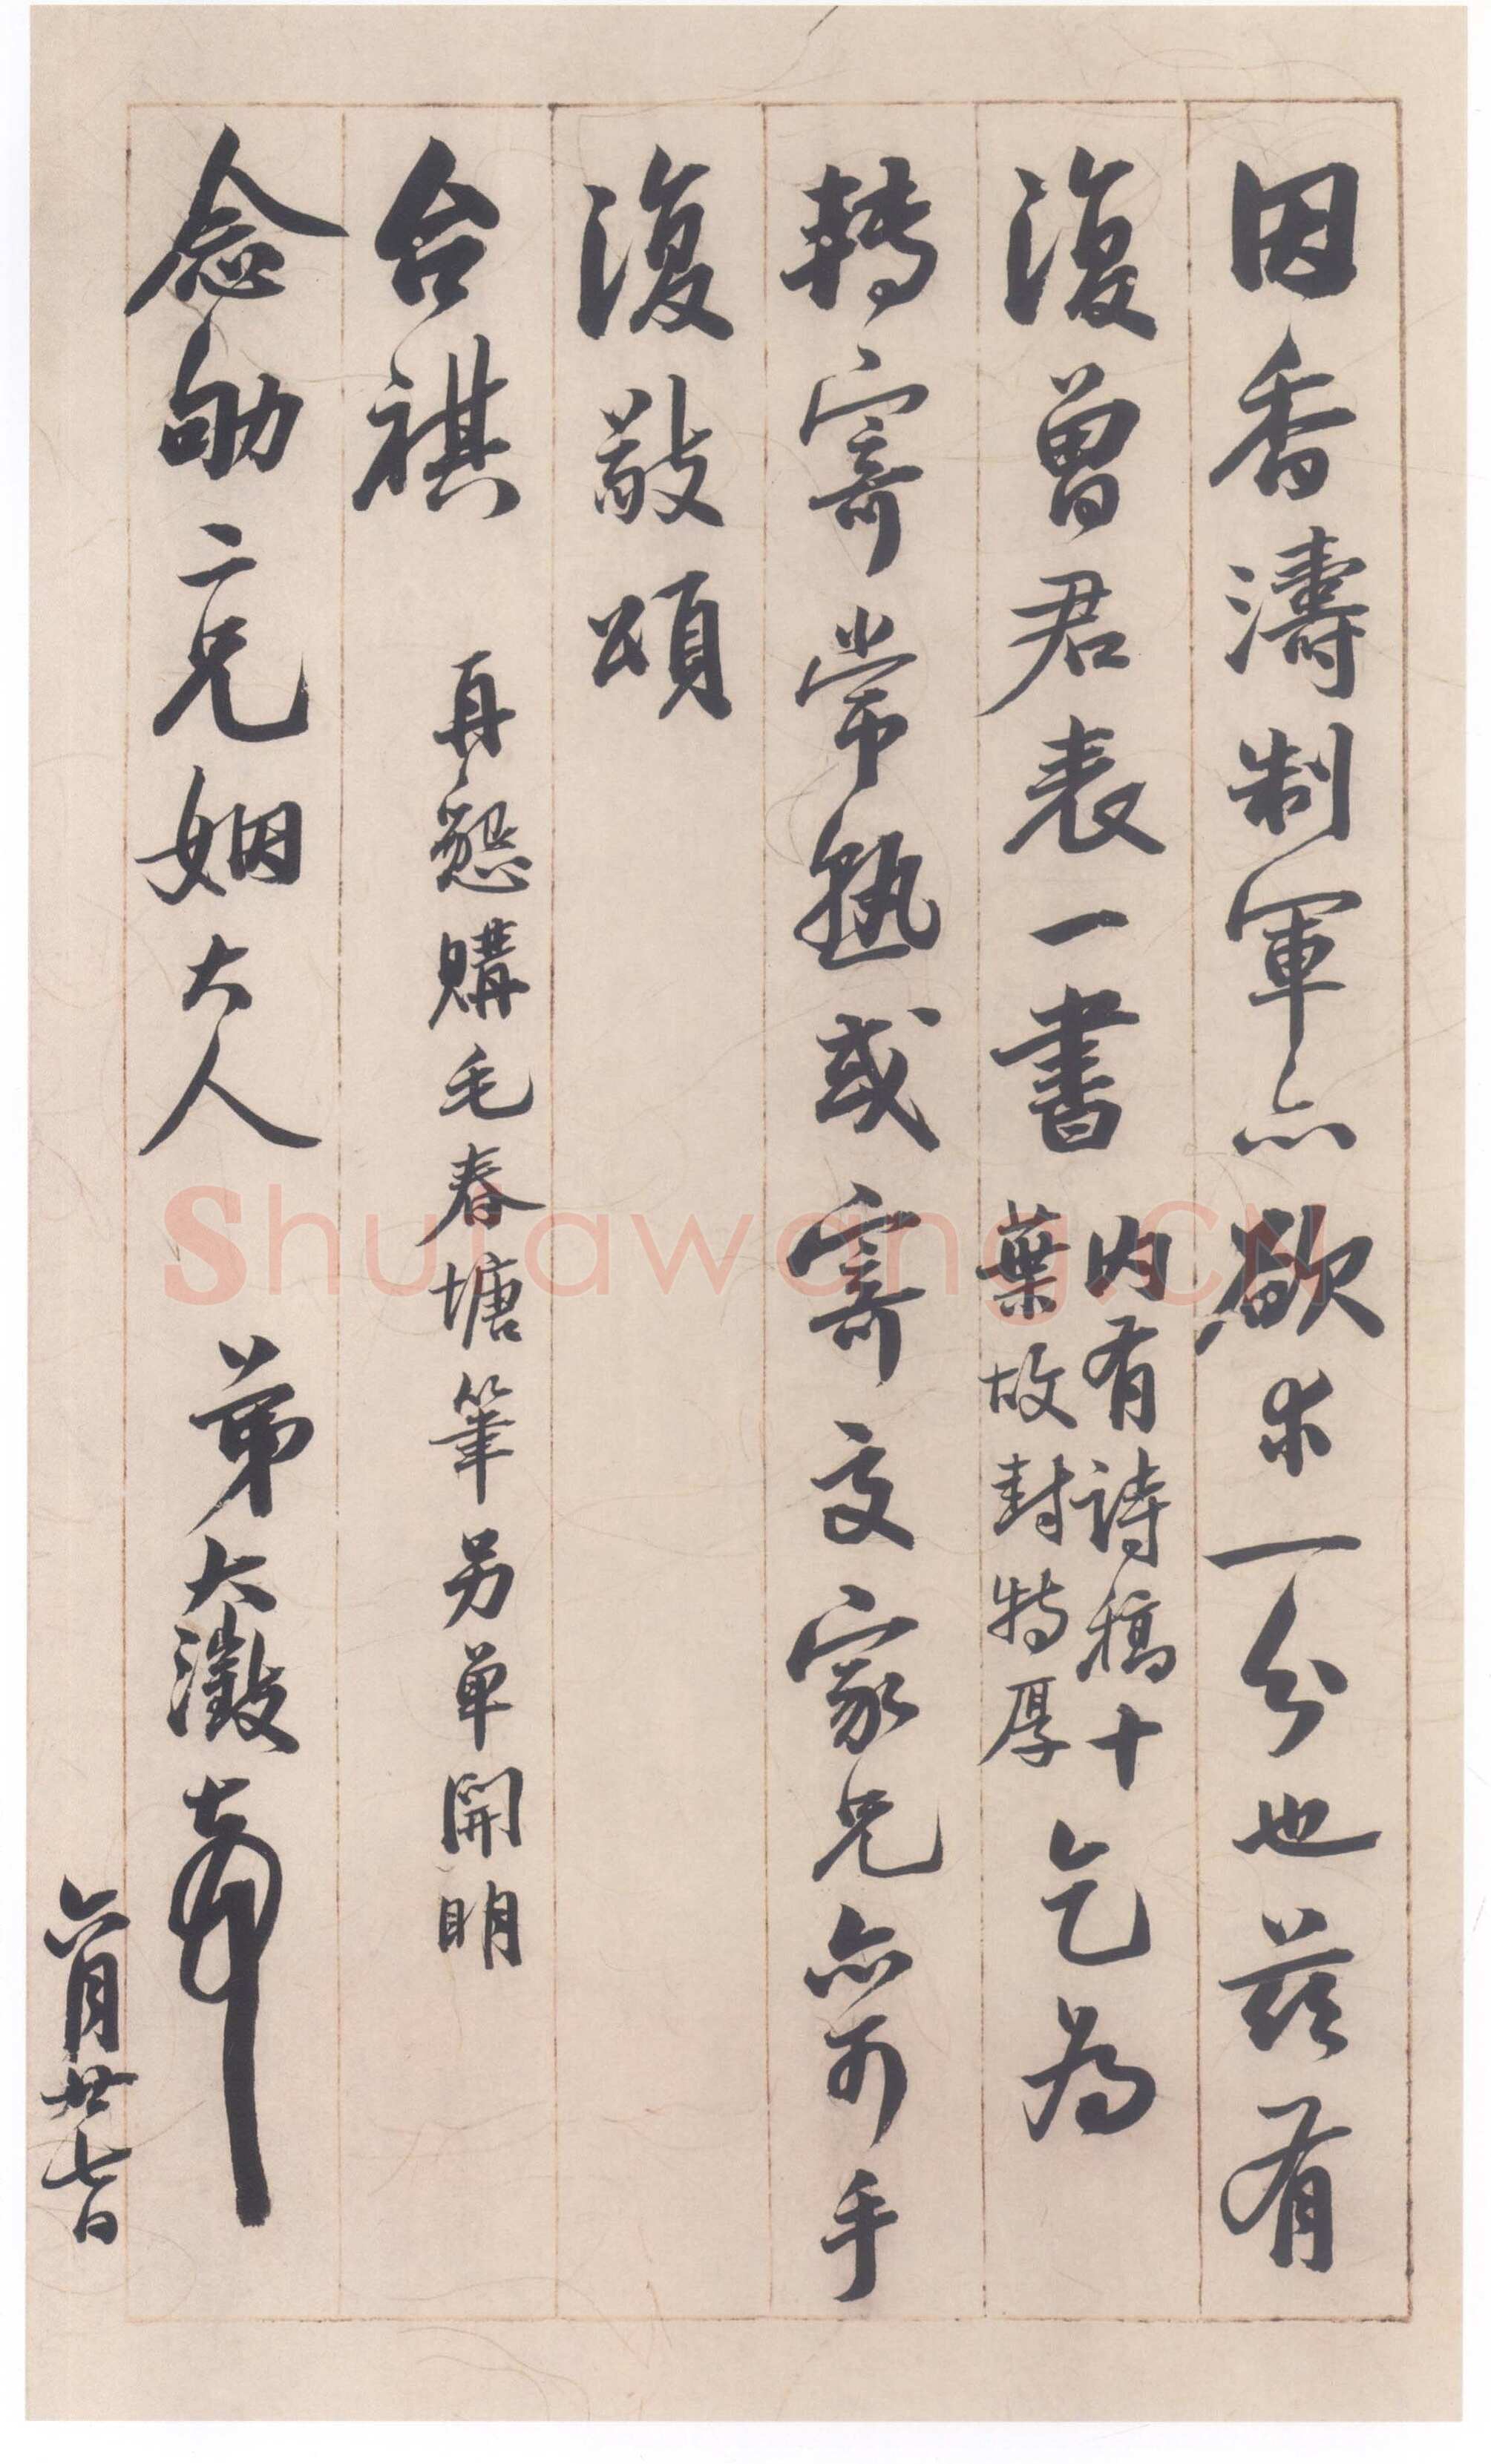 因香濤制軍亦欲求一分也茲有
復曾君表一書
內有詩稿十
葉故封特厚
乞為
轉寄常熟或寄交家兄亦可手
復敬頌
台祺
再懇購毛春塘筆另单開明
念劬二兄姻大人
弟大澂頓首
六月廿七日
Shufawang.cn